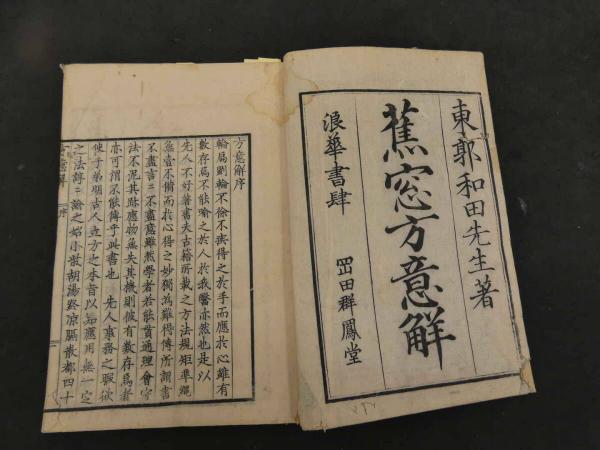 東郭和田先生著
蕉窓方意解
浪華書肆 岡田群鳳堂
方意解序
輪扁斲輪不徐不疾得之於手而應於心雖有
數存焉不能喻之於人於我醫亦然也是以
先人不好著書夫古籍所載之方法規矩準繩
靡壹不備而於心得之妙獨為難得傳所謂書
不盡言言不盡意雖然學者若能貫通理會守
法不泥其跡應物無失其機則彼有數存焉者
亦可謂不能傳乎此書也 先人事務之暇欲
使子弟明古人立方之本旨以知應用無一定
之法諄諄論之始小柴胡湯終凉膈散都四十
方意解 序